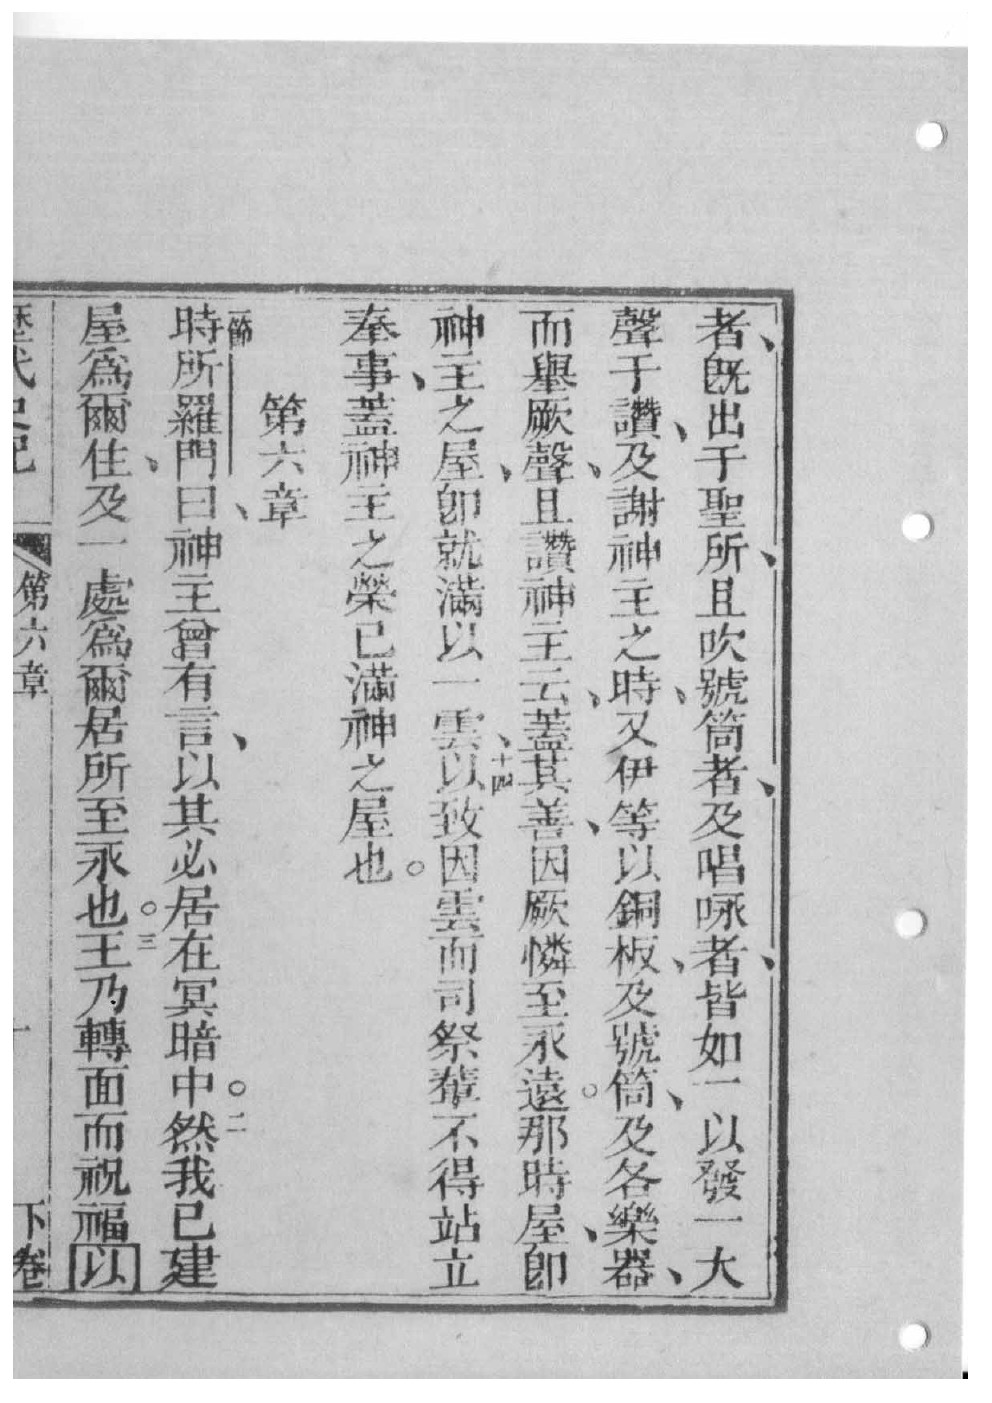 者、既出于聖所、且吹號筒者、及唱咏者、皆如一以發一大
聲于讚、及謝神主之時、又伊等以銅板、及號筒、及各樂器、
而舉厥聲、且讚神主云、蓋其善、因厥憐至永遠。那時屋、即
神主之屋、即就滿以一雲、十四以致因雲而司祭輩不得站立
奉事、蓋神主之榮已滿神之屋也。
第六章
一節時所羅門曰、神主曾有言、以其必居在冥暗中。二然我已建
屋爲爾住、及一處爲爾居所至永也。三王乃轉面而祝福以
歷代史記 第六章 十 下卷